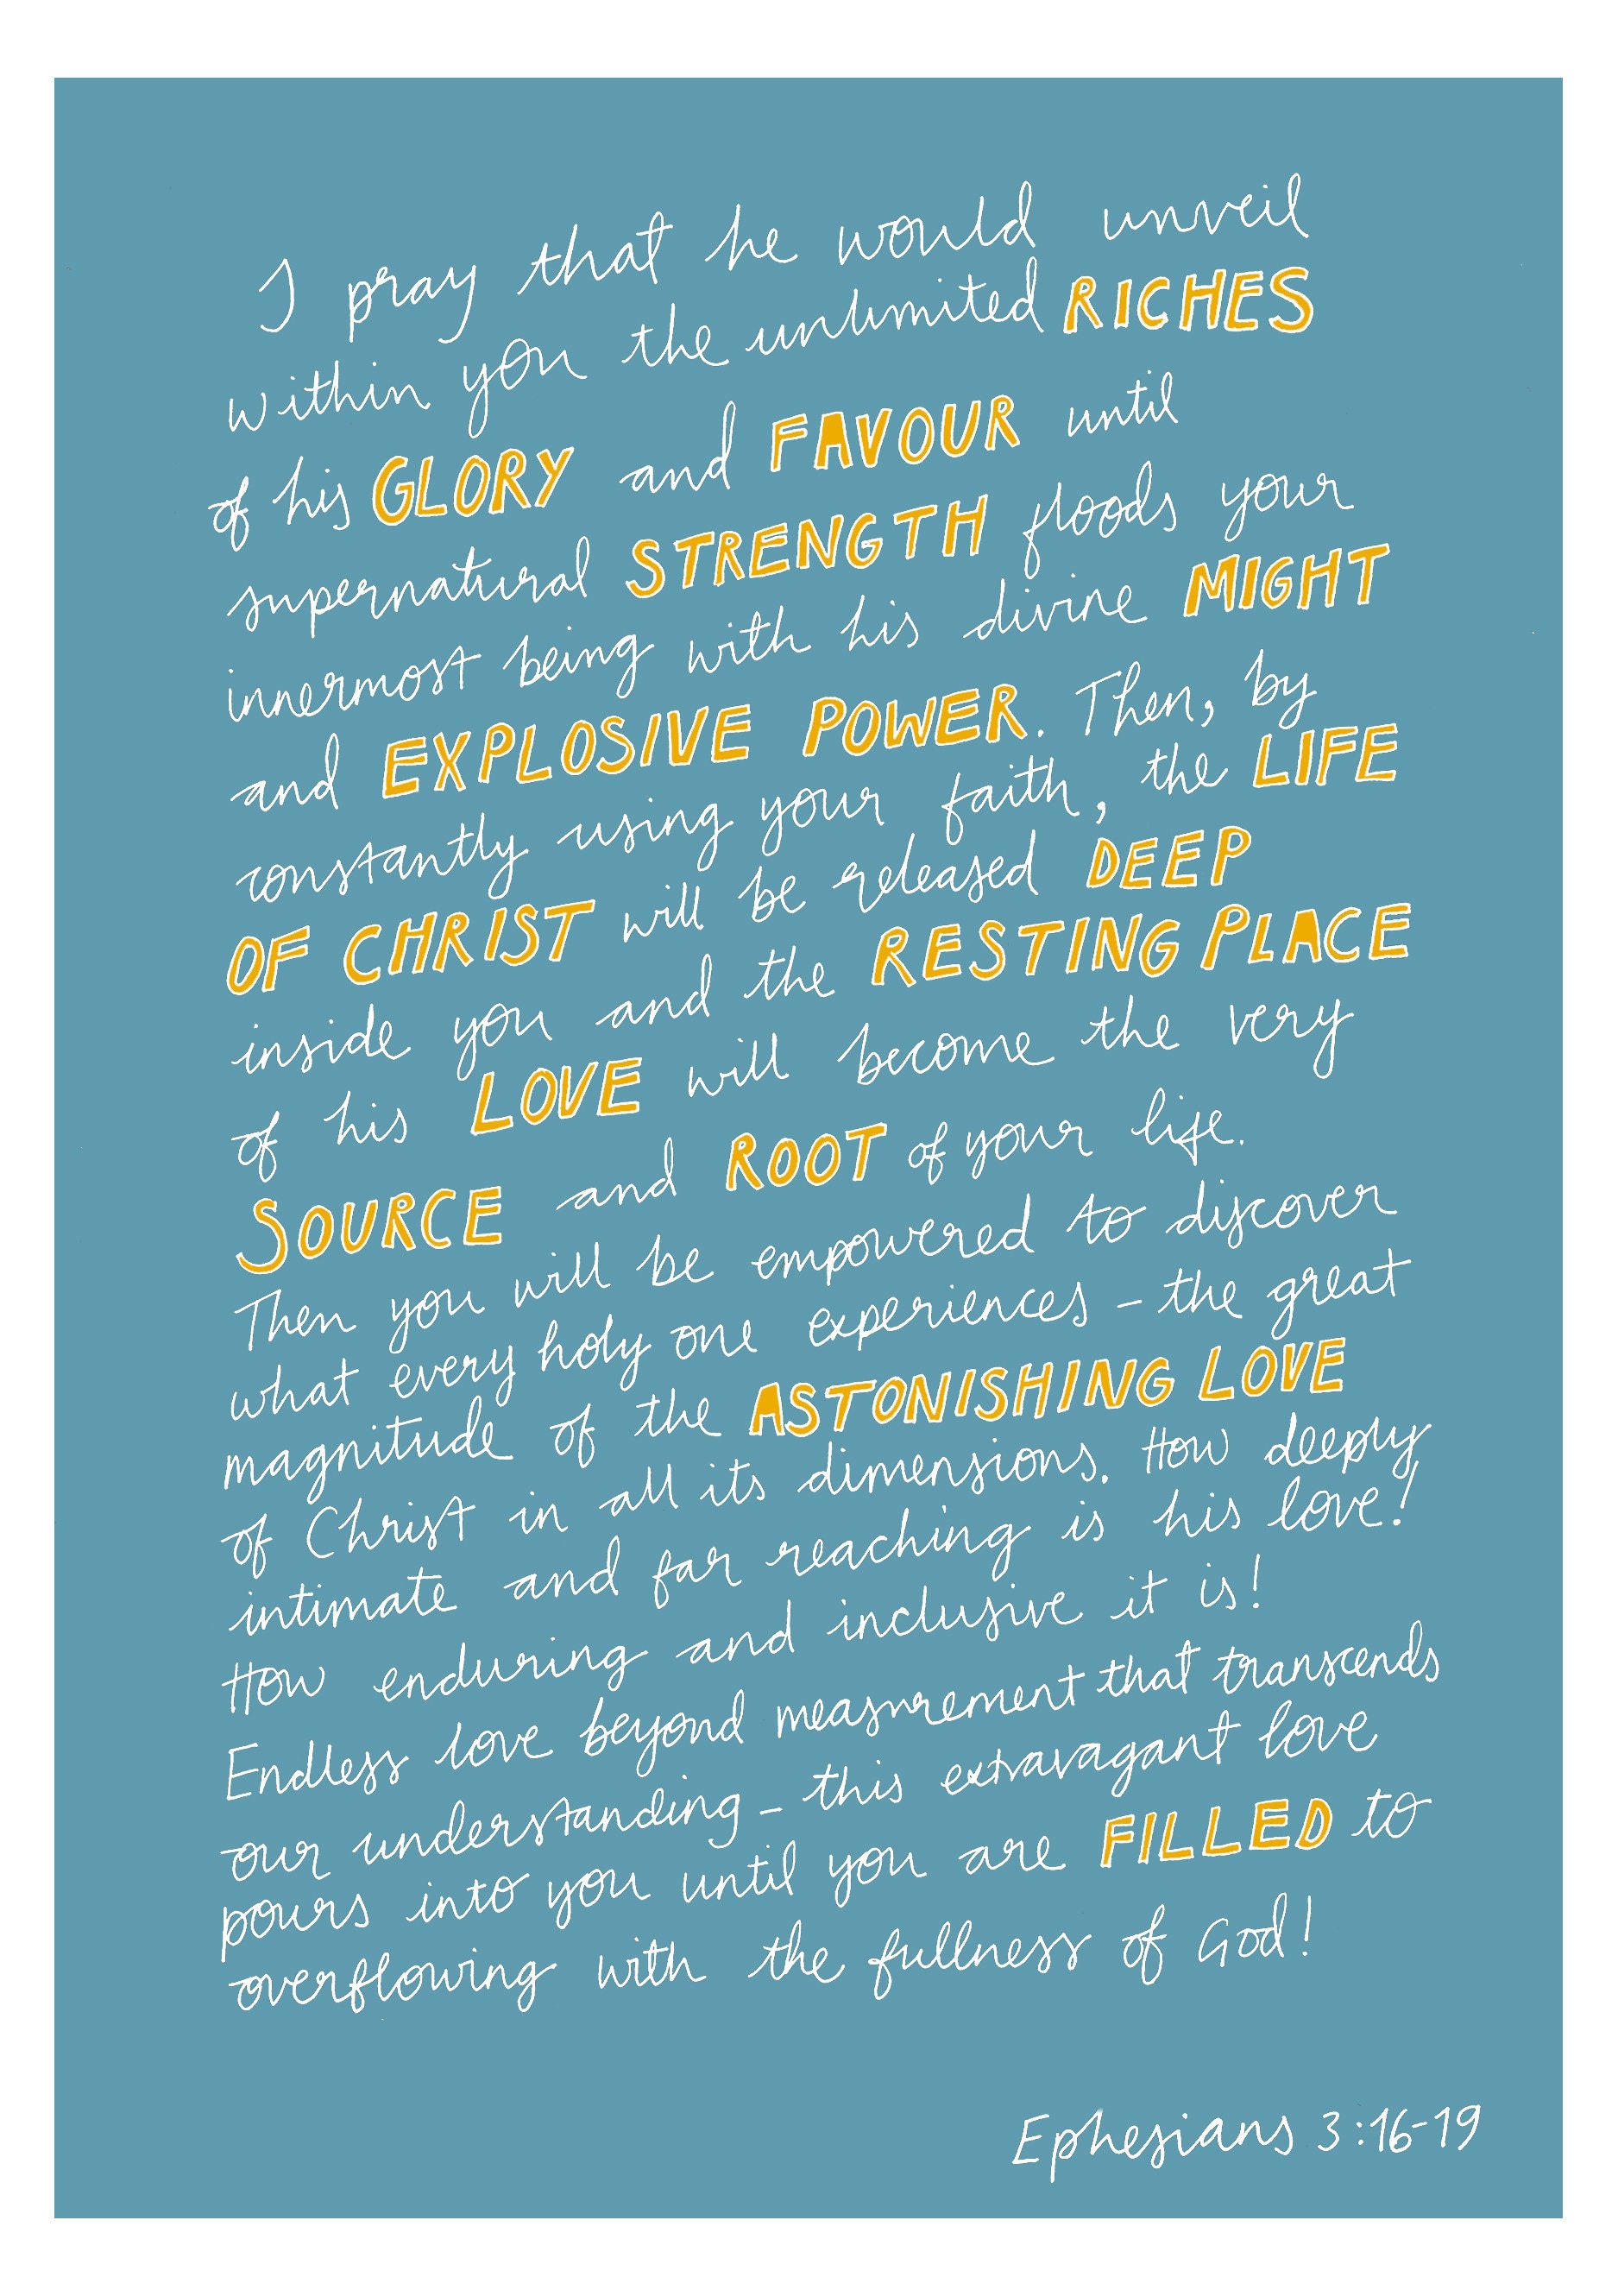 I pray that he would unveil
within you the unlimited RICHES
of his GLORY and FAVOUR until
supernatural STRENGTH floods your
innermost being with his divine MIGHT
and EXPLOSIVE POWER. Then, by
constantly using your faith, the LIFE
OF CHRIST will be released DEEP
inside you and the RESTING PLACE
of his LOVE will become the very
SOURCE and ROOT of your life.
Then you will be empowered to discover
what every holy one experiences - the great
magnitude of the ASTONISHING LOVE
of Christ in all its dimensions. How deeply
intimate and far reaching is his love!
How enduring and inclusive it is!
Endless love beyond measurement that transcends
our understanding - this extravagant love
pours into you until you are FILLED to
overflowing with the fullness of God!
Ephesians 3:16-19